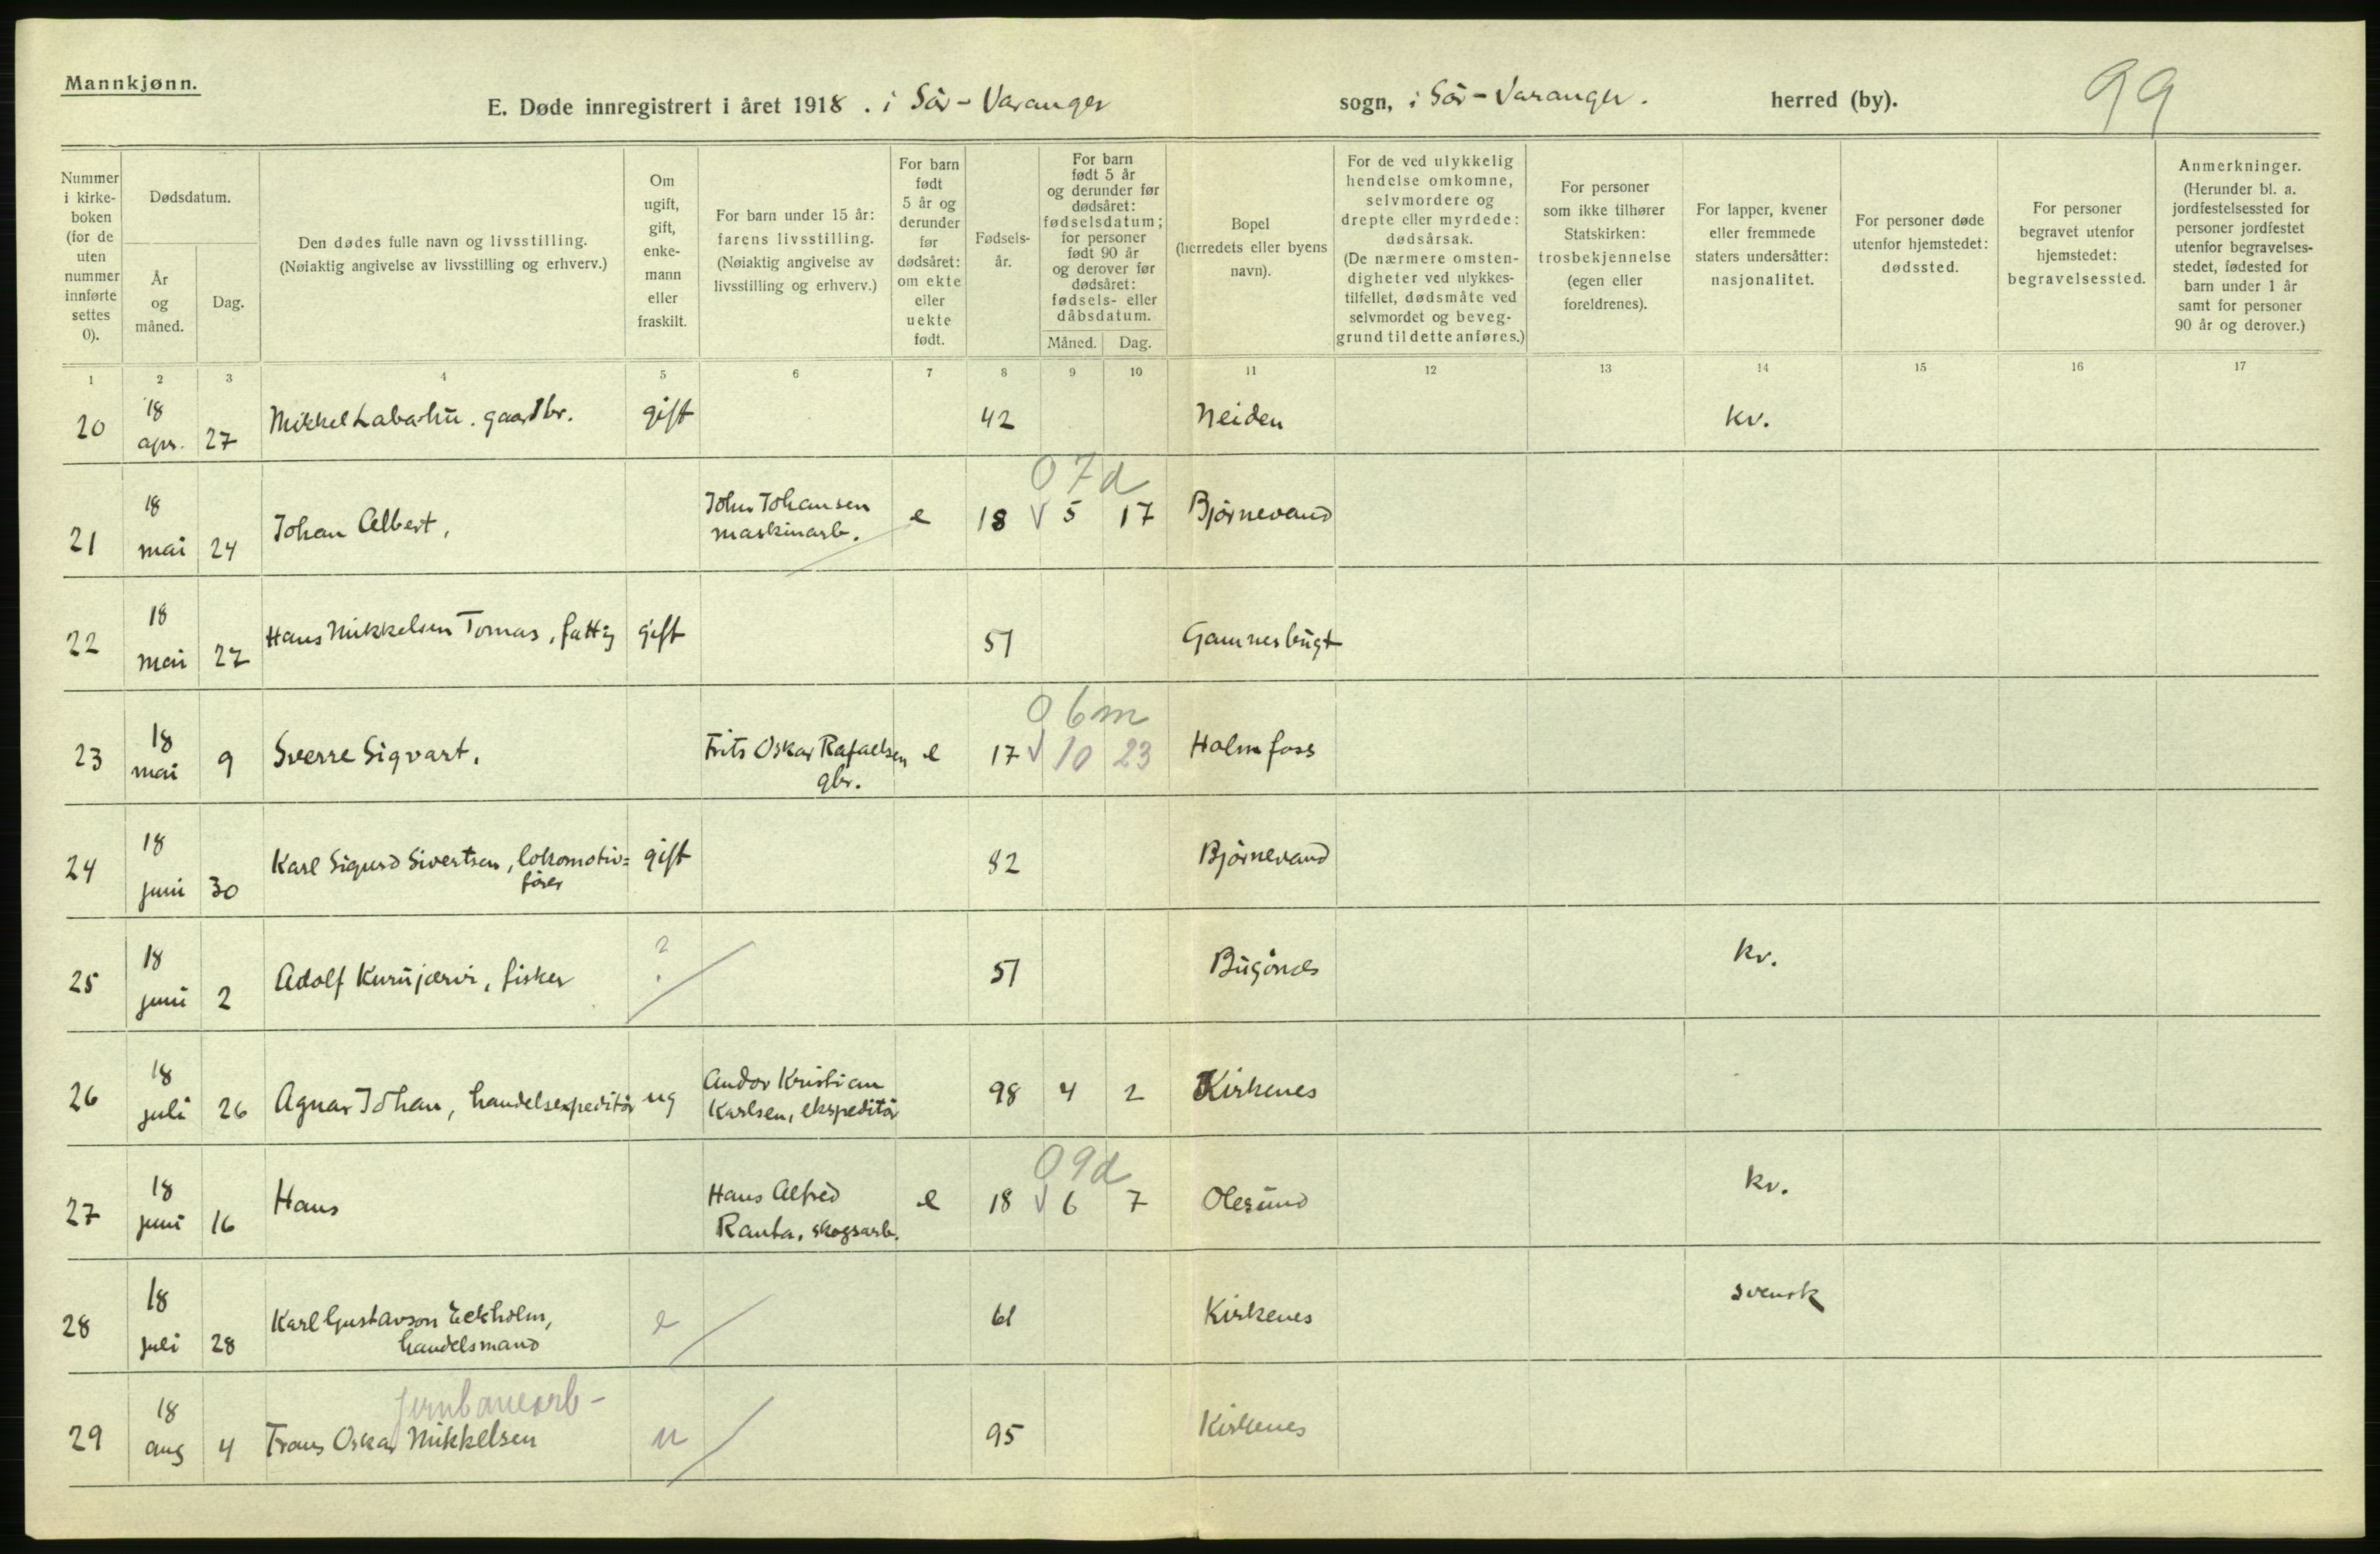 Mannkjønn.
E. Døde innregistrert i året 1918 . i Sør-Varanger sogn, i Sør-Varanger. herred (by).
99
Nummer
i kirke-
boken
(for de
uten
nummer
innførte
settes
0).
Dødsdatum.
År
og
måned.
Dag.
Den dødes fulle navn og livsstilling.
(Nøiaktig angivelse av livsstilling og erhverv.)
Om
ugift,
gift,
enke-
mann
eller
fraskilt.
For barn under 15 år:
farens livsstilling.
(Nøiaktig angivelse av
livsstilling og erhverv.)
For barn
født
5 år og
derunder
før
dødsåret:
om ekte
eller
uekte
født.
Fødsels-
år.
For barn
født 5 år
og derunder før
dødsåret:
fødselsdatum;
for personer
født 90 år
og derover før
dødsåret:
fødsels- eller
dåbsdatum.
Måned. Dag.
Bopel
(herredets eller byens
navn).
For de ved ulykkelig
hendelse omkomne,
selvmordere og
drepte eller myrdede:
dødsårsak.
(De nærmere omsten-
digheter ved ulykkes-
tilfellet, dødsmåte ved
selvmordet og beveg-
grund til dette anføres.)
For personer
som ikke tilhører
Statskirken:
trosbekjennelse
(egen eller
foreldrenes).
For lapper, kvener
eller fremmede
staters undersåtter:
nasjonalitet.
For personer døde
utenfor hjemstedet:
dødssted.
For personer
begravet utenfor
hjemstedet:
begravelsessted.
Anmerkninger.
(Herunder bl. a.
jordfestelsessted for
personer jordfestet
utenfor begravelses-
stedet, fødested for
barn under 1 år
samt for personer
90 år og derover.)
1 2 3 4 5 6 7 8 9 10 11 12 13 14 15 16 17
20 18 apr. 27 Mikkel Labahü. gaardbr. gift 42 Neiden kv.
0 7d
21 18 mai 24 Johan Albert, John Johansen e 18 √ 5 17 Bjørnevand
maskinarb.
22 18 mai 27 Hans Mikkelsen Tomas, fattig gift 51 Gamnesbugt
0 6m
23 18 mai 9 Sverre Sigvart. Frits Oskar Rafaelsen e 17 √ 10 23 Holmfoss
gbr.
24 18 juni 30 Karl Sigurd Sivertsen, lokomotiv= gift 82 Bjørnevand
fører
25 18 juni 2 Adolf Kurujærvi, fisker ? 51 Bugønes kv.
26 18 juli 26 Agnar Johan, handelsexpeditør ug Andor Kristian 98 4 2 Kirkenes
Karlsen, ekspeditør
0 9d
27 18 juni 16 Hans Hans Alfred e 18 √ 6 7 Olesund kv.
Ranta, skogsarb.
28 18 juli 28 Karl Gustavson Eekholm, e 61 Kirkenes svensk
handelsmand
jernbanearb-
29 18 aug 4 Frans Oskar Mikkelsen u 95 Kirkenes